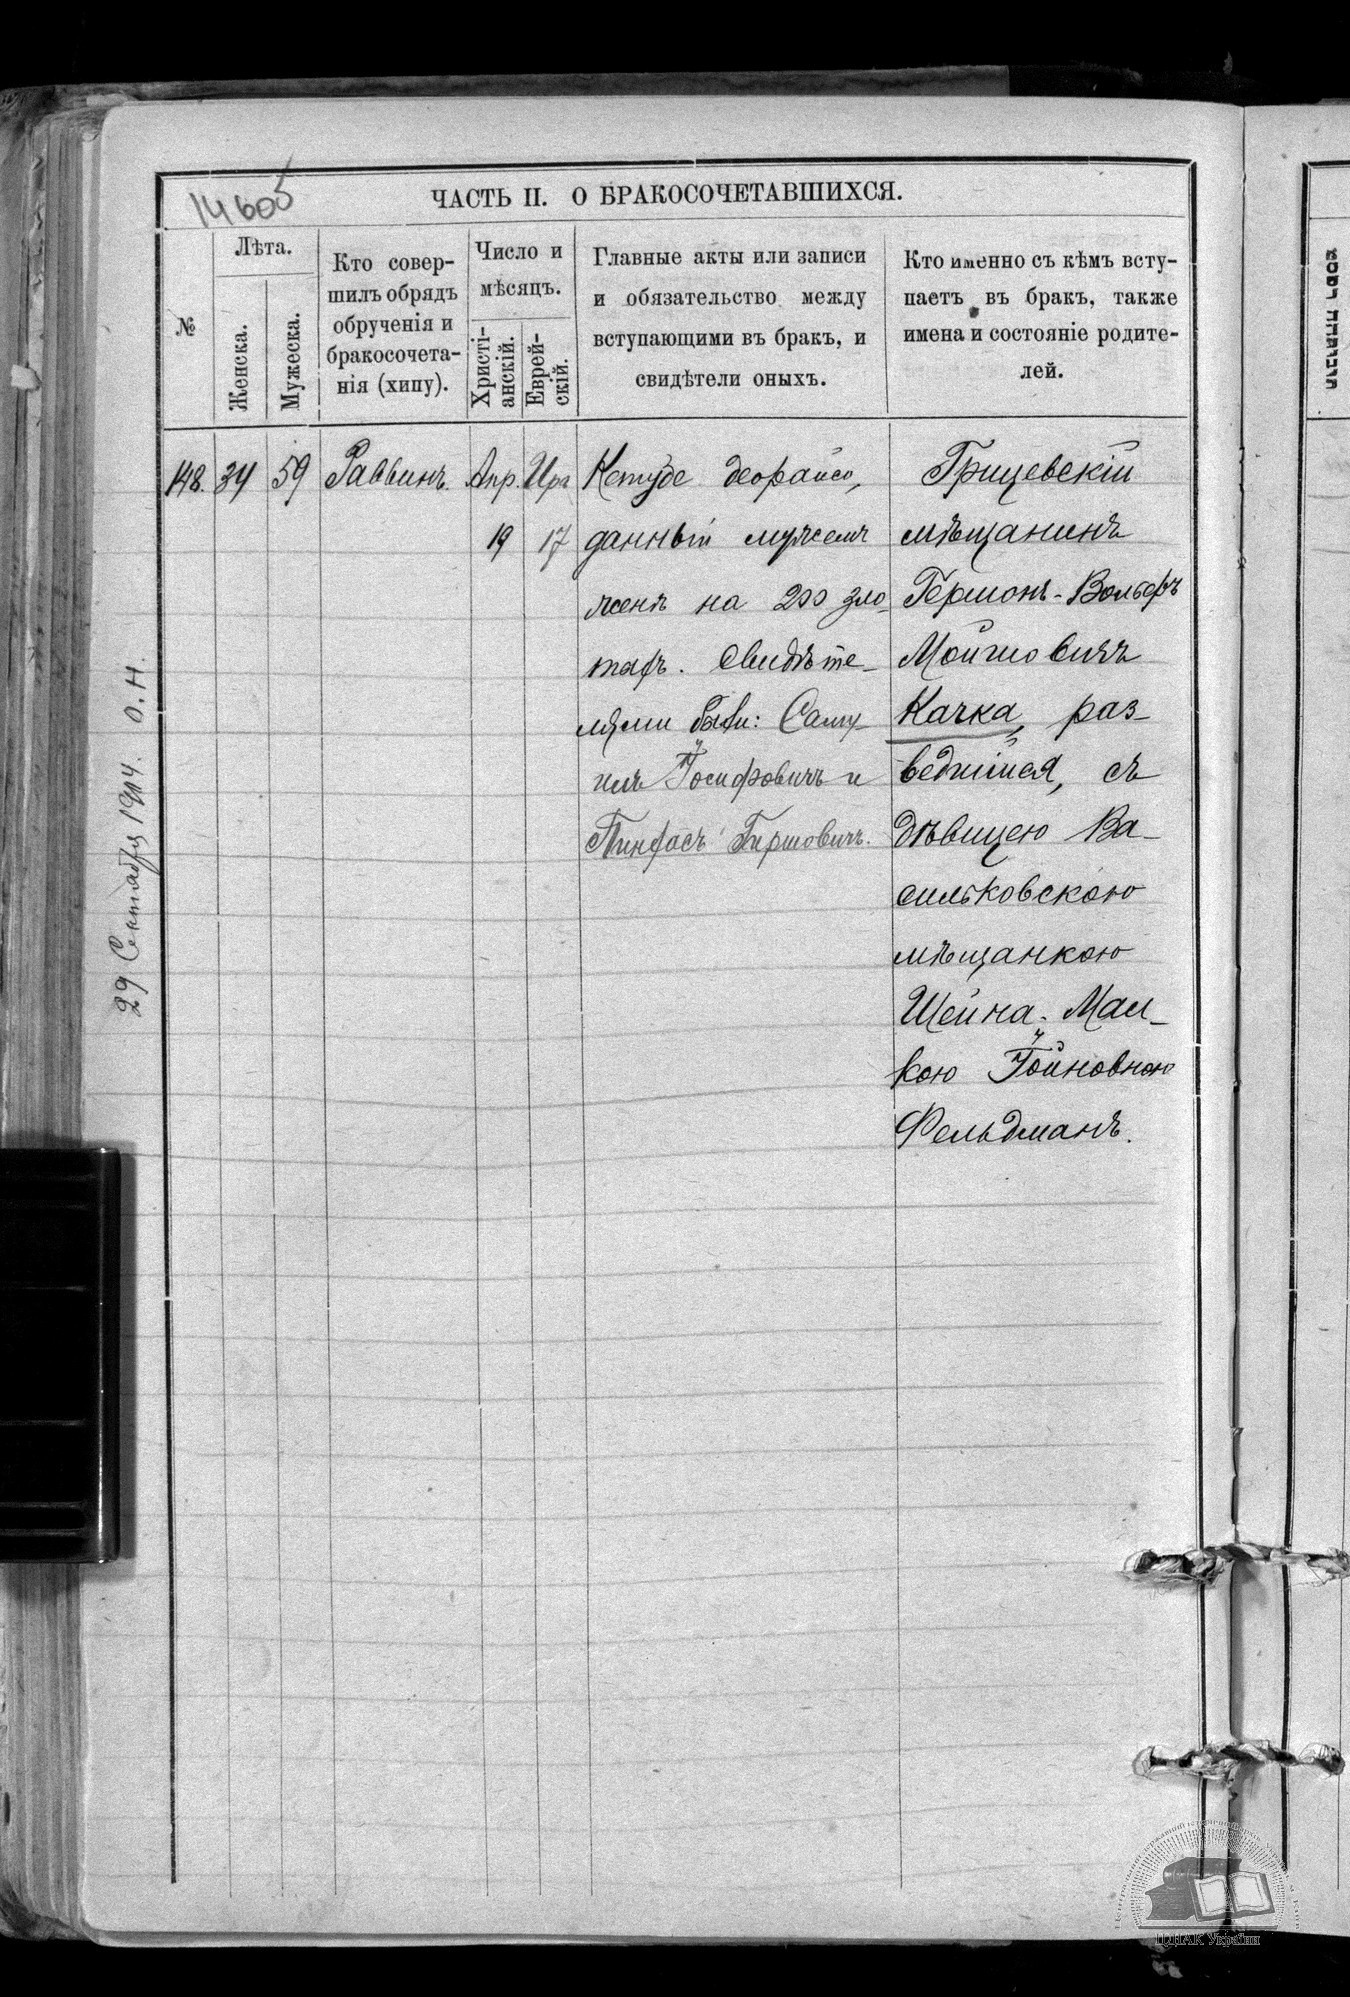 14605
ЧАСТЬ II. О БРАКОСОЧЕТАВШИХСЯ.
№
Лѣта.
Женска.
Мужеска.
Кто совер-
шилъ обрядъ
обрученія и
бракосочета-
нія (хипу).
Число и
мѣсяцъ.
Христі-
анскій.
Еврей-
скій.
Главные акты или записи
и обязательство между
вступающими въ бракъ, и
свидѣтели оныхъ.
Кто именно съ кѣмъ всту-
паетъ въ бракъ, также
имена и состояніе родите-
лей.
148.
34
59
Раввинъ.
Апр.
19
Ира
17
Кетубе деорайсо,
данный мужемъ
женѣ на 200 зло-
тыхъ. Свидѣте-
лями были: Саму-
илъ Іосифовичъ и
Пинхасъ Гиршовичъ.
Грицевскій
мѣщанинъ
Гершонъ-Вольфъ
Мойшовичъ
Качка, раз-
ведшійся, съ
дѣвицею Ва-
сильковскою
мѣщанкою
Шейна-Мал-
кою Іойновною
Фельдманъ.
29 Сентября 1914. О.Н.
ЦДІАК України